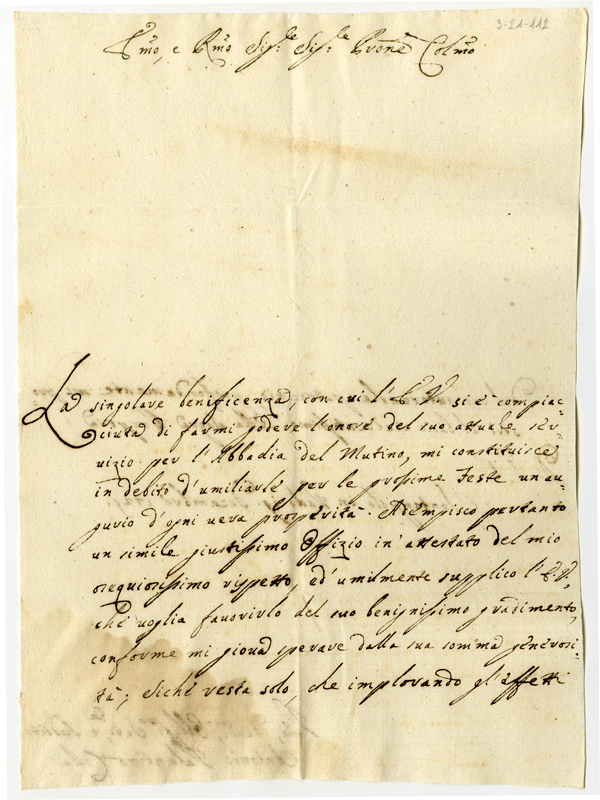 3-21-112
Emo, e Rmo Sig:re Sig:re Prone Colmo
La singolare benificenza, con cui l'E.V. si è compiac=
ciuta di farmi godere l'onore del suo attuale ser=
vizio per l'Abbadia del Mutino, mi constituisce
in debito d'umiliarle per le prossime Feste un au=
gurio d'ogni vera prosperità. Adempisco pertanto
un simile giustissimo Offizio in attestato del mio
ossequiosissimo rispetto, ed umilmente supplico l'E.V.
che voglia favorirlo del suo benignissimo gradimento,
conforme mi giova sperare dalla sua somma generosi=
tà; Sichè resta solo, che implorando gl'effetti